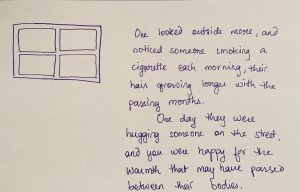 One looked outside more, and
noticed someone smoking a
cigarette each morning, their
hair growing longer with the
passing months.
One day they were
hugging someone on the street,
and you were happy for the
warmth that may have passed
between their bodies.